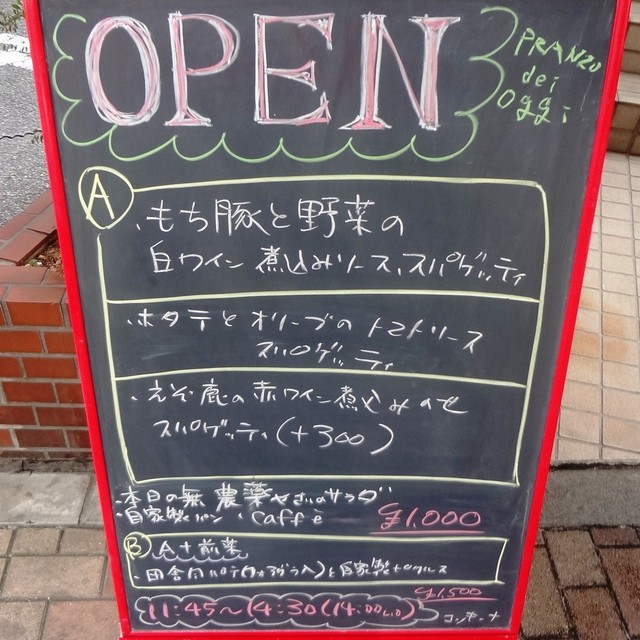 OPEN
PRANZO
dei
Oggi
A
・もち豚と野菜の
白ワイン煮込みソース、スパゲッティ
・ホタテとオリーブのトマトソース
スパゲッティ
・えぞ鹿の赤ワイン煮込みのせ
スパゲッティ(+300)
・本日の無農薬やさいのサラダ
・自家製パン ・caffè ¥1,000
B A+前菜
・田舎風パテ(フォアグラ入)と自家製
¥1,500
11:45〜14:30(14:00L.O)